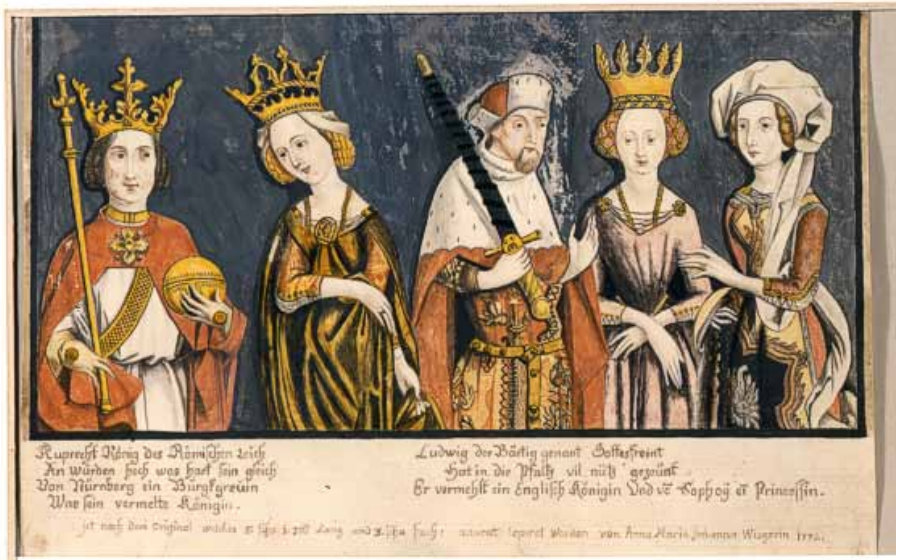 Ruprecht König des Römischen reich
An würden hoch was hart sein gleich
Von Nürnberg ein Burggrevin
Was sein vermelte Königin.
Ludwig der Bärtig genant Gottesfreint
Hat in die Pfaltz vil nütz gezeunt
Er vermehlt ein Englisch Königin Und vō Sophoÿ ei Princessin.
ist nach dem Original welches 5 schu 1 zoll Lang und 3 schu hoch, copiert worden von Anna Maria Johanna Wisgerin 1772.